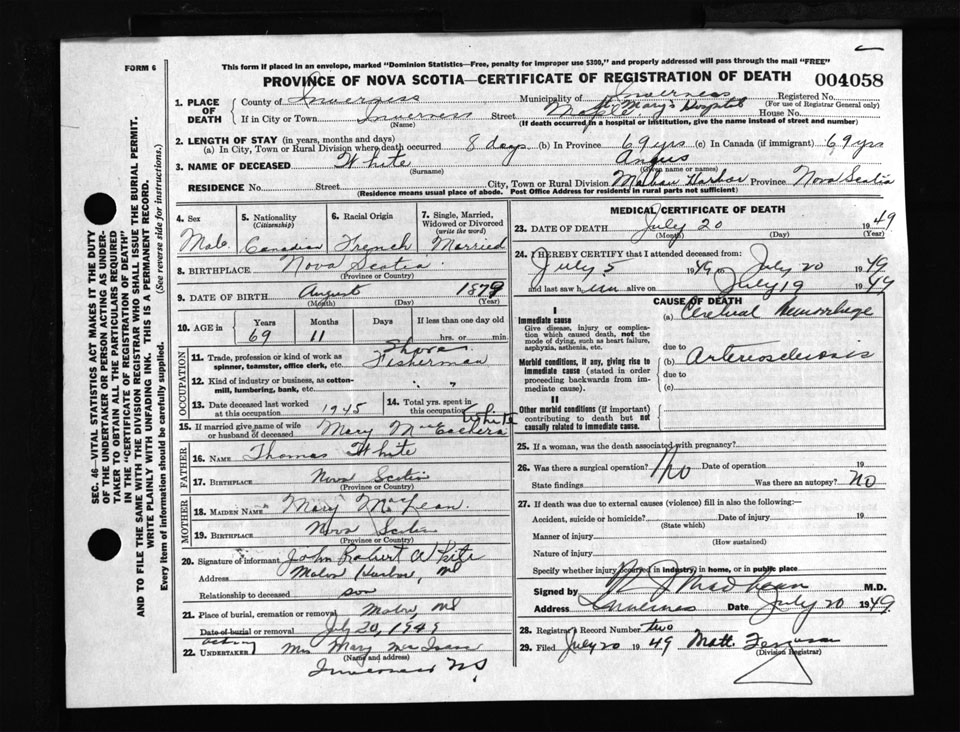 This form if placed in an envelope, marked "Dominion Statistics—Free, penalty for improper use $300," and properly addressed will pass through the mail "FREE"
FORM 6
PROVINCE OF NOVA SCOTIA—CERTIFICATE OF REGISTRATION OF DEATH 004058
1. PLACE OF DEATH County of Inverness Municipality of Inverness Registered No.
(For use of Registrar General only)
If in City or Town Inverness Street St Mary's Hospital House No.
(Name) (If death occurred in a hospital or institution, give the name instead of street and number)
2. LENGTH OF STAY (in years, months and days)
(a) In City, Town or Rural Division where death occurred 8 days (b) In Province 69 yrs (c) In Canada (if immigrant) 69 yrs
3. NAME OF DECEASED White Angus
(Surname) (Given name or names)
RESIDENCE No. Street City, Town or Rural Division Mabou Harbor Province Nova Scotia
(Residence means usual place of abode. Post Office Address for residents in rural parts not sufficient)
SEC. 46—VITAL STATISTICS ACT MAKES IT THE DUTY
OF THE UNDERTAKER OR PERSON ACTING AS UNDER-
TAKER TO OBTAIN ALL THE PARTICULARS REQUIRED
IN THE "CERTIFICATE OF REGISTRATION OF DEATH"
AND TO FILE THE SAME WITH THE DIVISION REGISTRAR WHO SHALL ISSUE THE BURIAL PERMIT.
WRITE PLAINLY WITH UNFADING INK. THIS IS A PERMANENT RECORD.
Every item of information should be carefully supplied. (See reverse side for instructions.)
4. Sex 5. Nationality (Citizenship) 6. Racial Origin 7. Single, Married, Widowed or Divorced (write the word)
Male Canadian French Married
8. BIRTHPLACE Nova Scotia
(Province or Country)
9. DATE OF BIRTH August 1879
(Month) (Day) (Year)
10. AGE in Years Months Days If less than one day
69 11 hrs. or min.
OCCUPATION
11. Trade, profession or kind of work as spinner, teamster, office clerk, etc. Shore Fisherman
12. Kind of industry or business, as cotton-mill, lumbering, bank, etc. " "
13. Date deceased last worked at this occupation 1945 14. Total yrs. spent in this occupation
15. If married give name of wife or husband of deceased Mary MacEachern White
FATHER
16. NAME Thomas White
17. BIRTHPLACE Nova Scotia
(Province or Country)
MOTHER
18. MAIDEN NAME Mary MacLean
19. BIRTHPLACE Nova Scotia
(Province or Country)
20. Signature of informant John Robert White
Address Mabou Harbor, NS
Relationship to deceased son
21. Place of burial, cremation or removal Mabou NS
Date of burial or removal July 20, 1949
acting
22. UNDERTAKER Mrs Mary Mac Isaac
(Name and address)
Inverness NS
MEDICAL CERTIFICATE OF DEATH
23. DATE OF DEATH July 20 1949
(Month) (Day) (Year)
24. I HEREBY CERTIFY that I attended deceased from:
July 5 1949 to July 20 1949
and last saw him alive on July 19 1949
CAUSE OF DEATH
I
Immediate cause (a) Cerebral Hemorrhage
Give disease, injury or complication which caused death, not the mode of dying, such as heart failure, asphyxia, asthenia, etc.
due to
Morbid conditions, if any, giving rise to immediate cause (stated in order proceeding backwards from immediate cause). (b) Arteriosclerosis
due to
(c)
II
Other morbid conditions (if important) contributing to death but not causally related to immediate cause.
25. If a woman, was the death associated with pregnancy?
26. Was there a surgical operation? No Date of operation 19
State findings Was there an autopsy? No
27. If death was due to external causes (violence) fill in also the following:—
Accident, suicide or homicide? Date of injury 19
(State which)
Manner of injury
(How sustained)
Nature of injury
Specify whether injury occurred in industry, in home, or in public place
Signed by M.D.
Address Inverness Date July 20 1949
28. Registrar's Record Number two
29. Filed July 20 1949 Matt.
(Division Registrar)